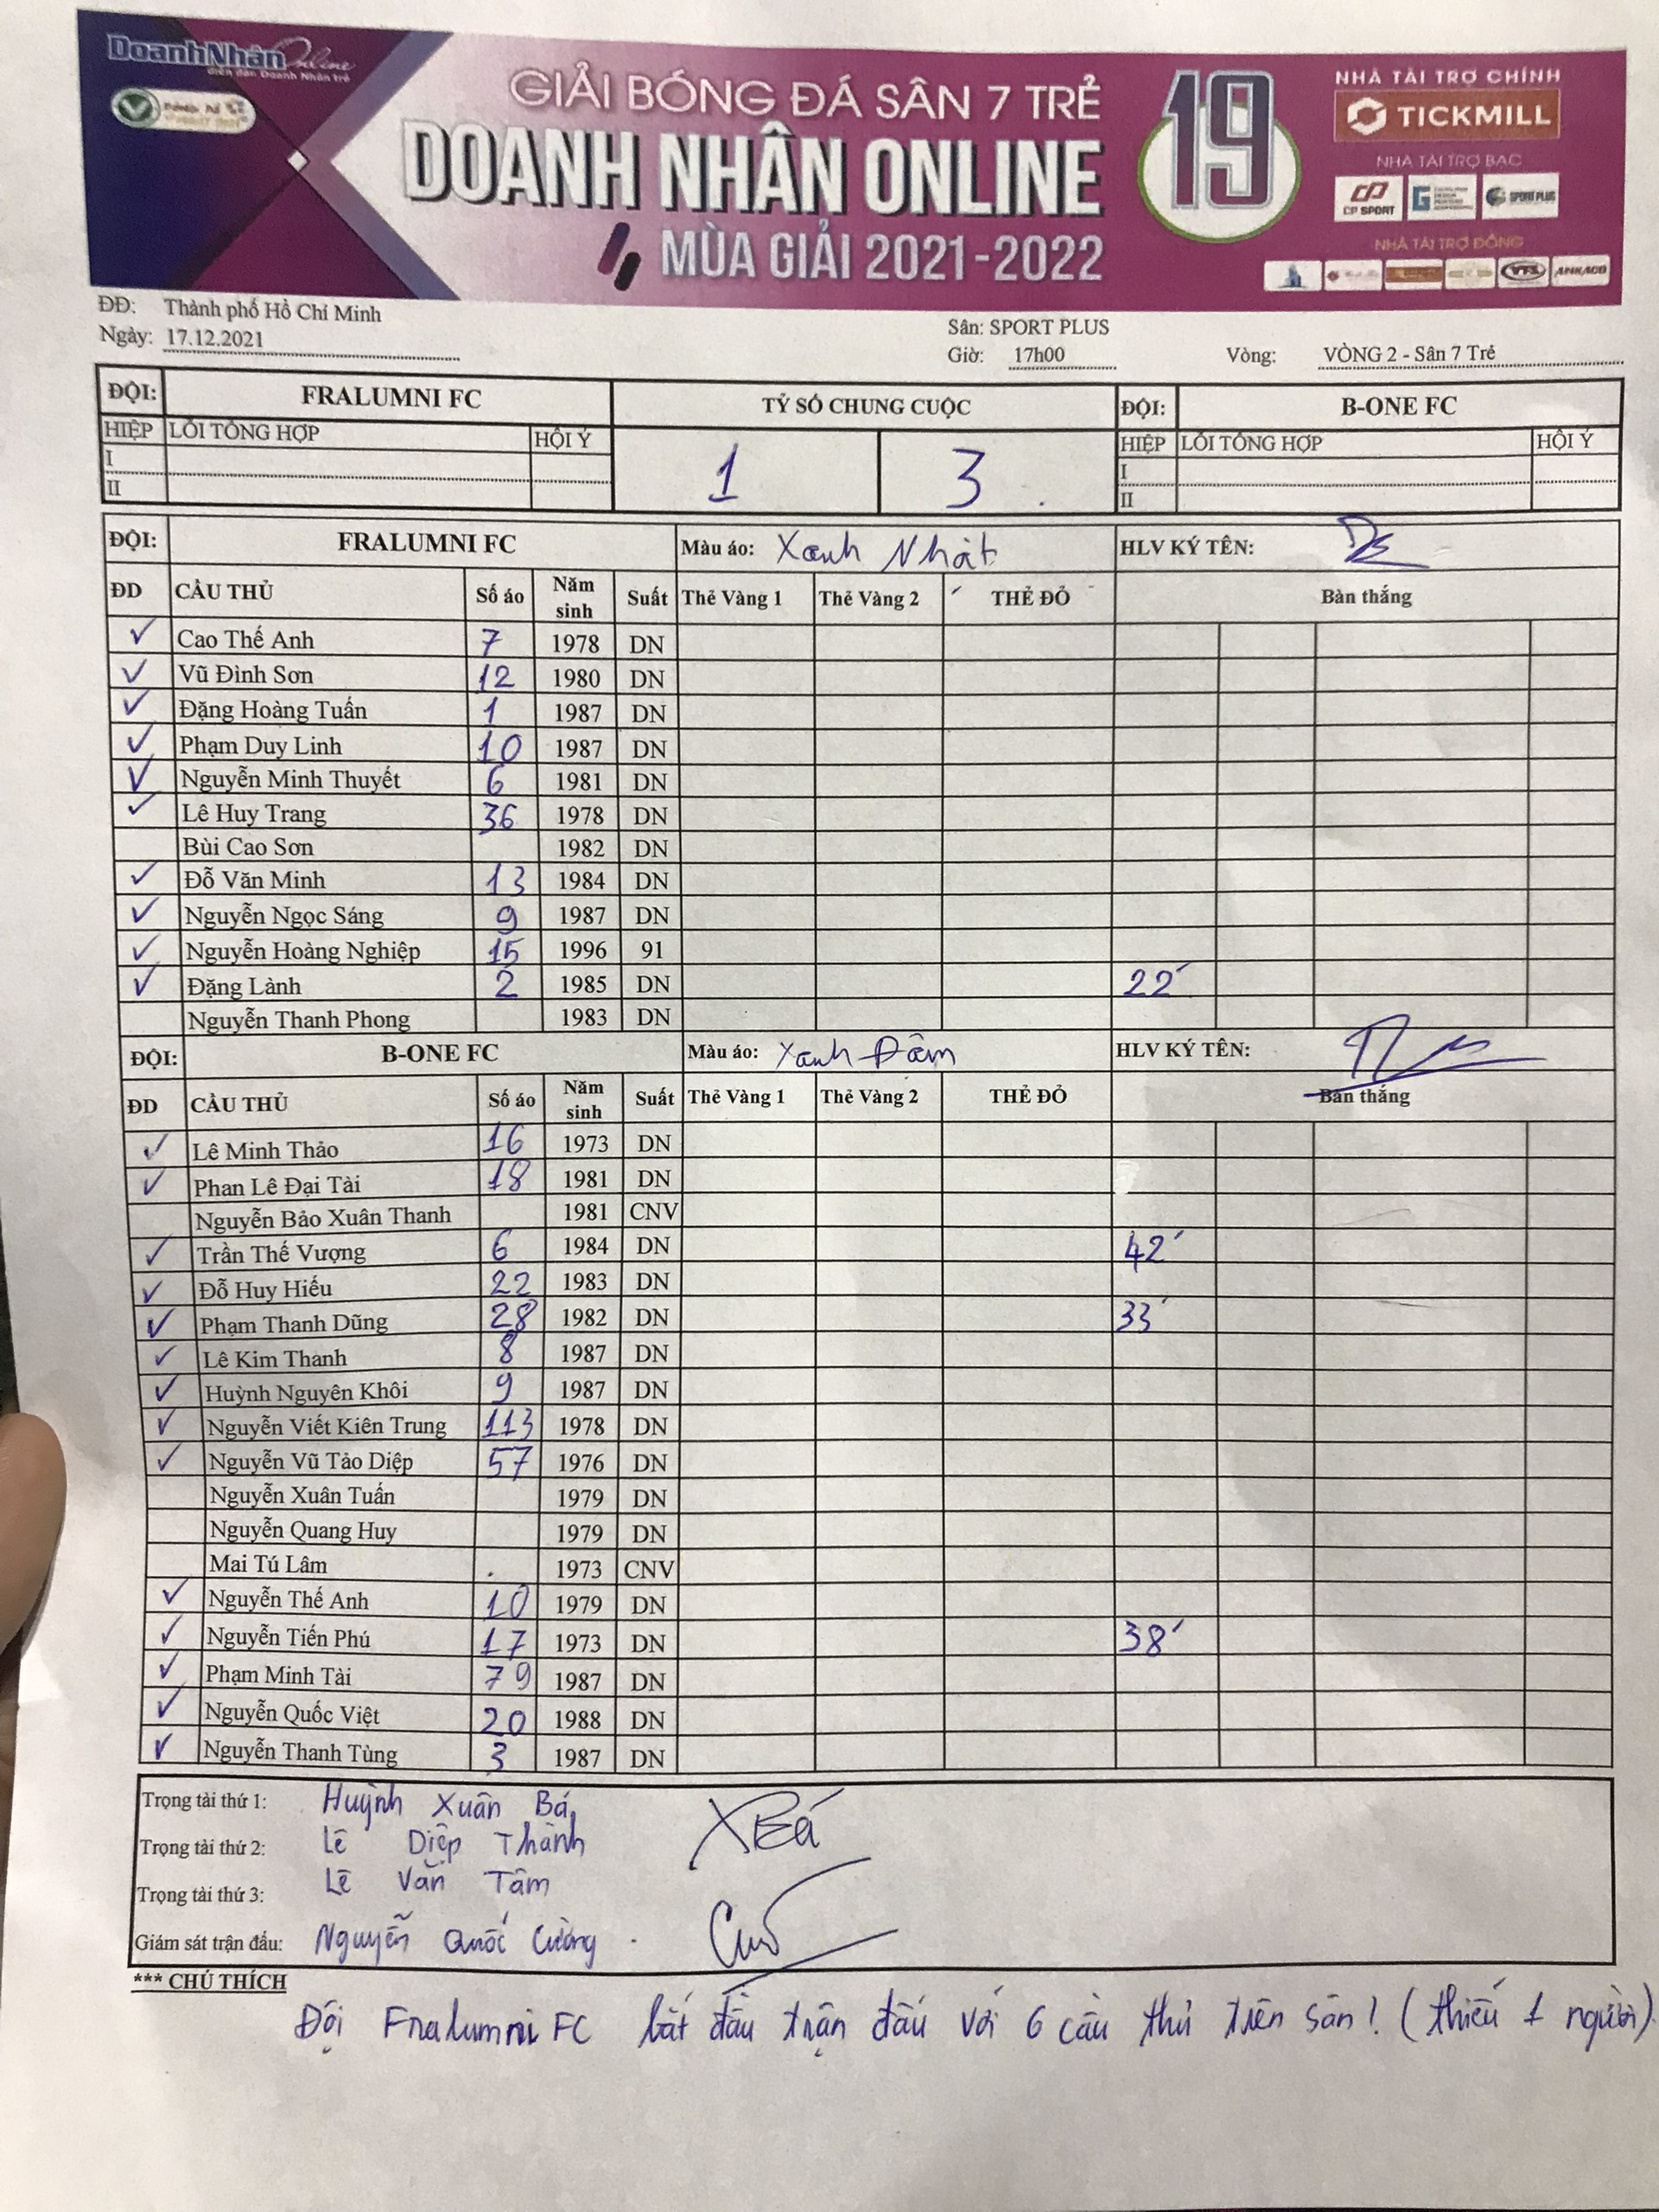 DoanhNhânOnline
diễn đàn Doanh Nhân trẻ
GIẢI BÓNG ĐÁ SÂN 7 TRẺ
DOANH NHÂN ONLINE
MÙA GIẢI 2021-2022
19
NHÀ TÀI TRỢ CHÍNH
TICKMILL
NHÀ TÀI TRỢ BẠC
CP SPORT G SPORT PLUS
NHÀ TÀI TRỢ ĐỒNG
VTS ANKACO
ĐĐ: Thành phố Hồ Chí Minh
Sân: SPORT PLUS
Ngày: 17.12.2021 Giờ: 17h00 Vòng: VÒNG 2 - Sân 7 Trẻ
ĐỘI: FRALUMNI FC TỶ SỐ CHUNG CUỘC ĐỘI: B-ONE FC
HIỆP LỖI TỔNG HỢP HỘI Ý 1 3 HIỆP LỖI TỔNG HỢP HỘI Ý
I I
II II
ĐỘI: FRALUMNI FC Màu áo: Xanh Nhạt HLV KÝ TÊN:
ĐD CẦU THỦ Số áo Năm sinh Suất Thẻ Vàng 1 Thẻ Vàng 2 THẺ ĐỎ Bàn thắng
✓ Cao Thế Anh 7 1978 DN
✓ Vũ Đình Sơn 12 1980 DN
✓ Đặng Hoàng Tuấn 1 1987 DN
✓ Phạm Duy Linh 10 1987 DN
✓ Nguyễn Minh Thuyết 6 1981 DN
✓ Lê Huy Trang 36 1978 DN
Bùi Cao Sơn 1982 DN
✓ Đỗ Văn Minh 13 1984 DN
✓ Nguyễn Ngọc Sáng 9 1987 DN
✓ Nguyễn Hoàng Nghiệp 15 1996 91
✓ Đặng Lành 2 1985 DN 22'
Nguyễn Thanh Phong 1983 DN
ĐỘI: B-ONE FC Màu áo: Xanh Đâm HLV KÝ TÊN:
ĐD CẦU THỦ Số áo Năm sinh Suất Thẻ Vàng 1 Thẻ Vàng 2 THẺ ĐỎ Bàn thắng
✓ Lê Minh Thảo 16 1973 DN
✓ Phan Lê Đại Tài 18 1981 DN
Nguyễn Bảo Xuân Thanh 1981 CNV
✓ Trần Thế Vượng 6 1984 DN 42'
✓ Đỗ Huy Hiếu 22 1983 DN
✓ Phạm Thanh Dũng 28 1982 DN 33'
✓ Lê Kim Thanh 8 1987 DN
✓ Huỳnh Nguyên Khôi 9 1987 DN
✓ Nguyễn Viết Kiên Trung 113 1978 DN
✓ Nguyễn Vũ Tảo Diệp 57 1976 DN
Nguyễn Xuân Tuấn 1979 DN
Nguyễn Quang Huy 1979 DN
Mai Tú Lâm 1973 CNV
✓ Nguyễn Thế Anh 10 1979 DN
✓ Nguyễn Tiến Phú 17 1973 DN 38'
✓ Phạm Minh Tài 79 1987 DN
✓ Nguyễn Quốc Việt 20 1988 DN
✓ Nguyễn Thanh Tùng 3 1987 DN
Trọng tài thứ 1: Huỳnh Xuân Bá XBá
Trọng tài thứ 2: Lê Diệp Thành
Trọng tài thứ 3: Lê Văn Tâm
Giám sát trận đấu: Nguyễn Quốc Cường
*** CHÚ THÍCH
Đội Fralumni FC bắt đầu trận đấu với 6 cầu thủ trên sân! (thiếu 1 người)